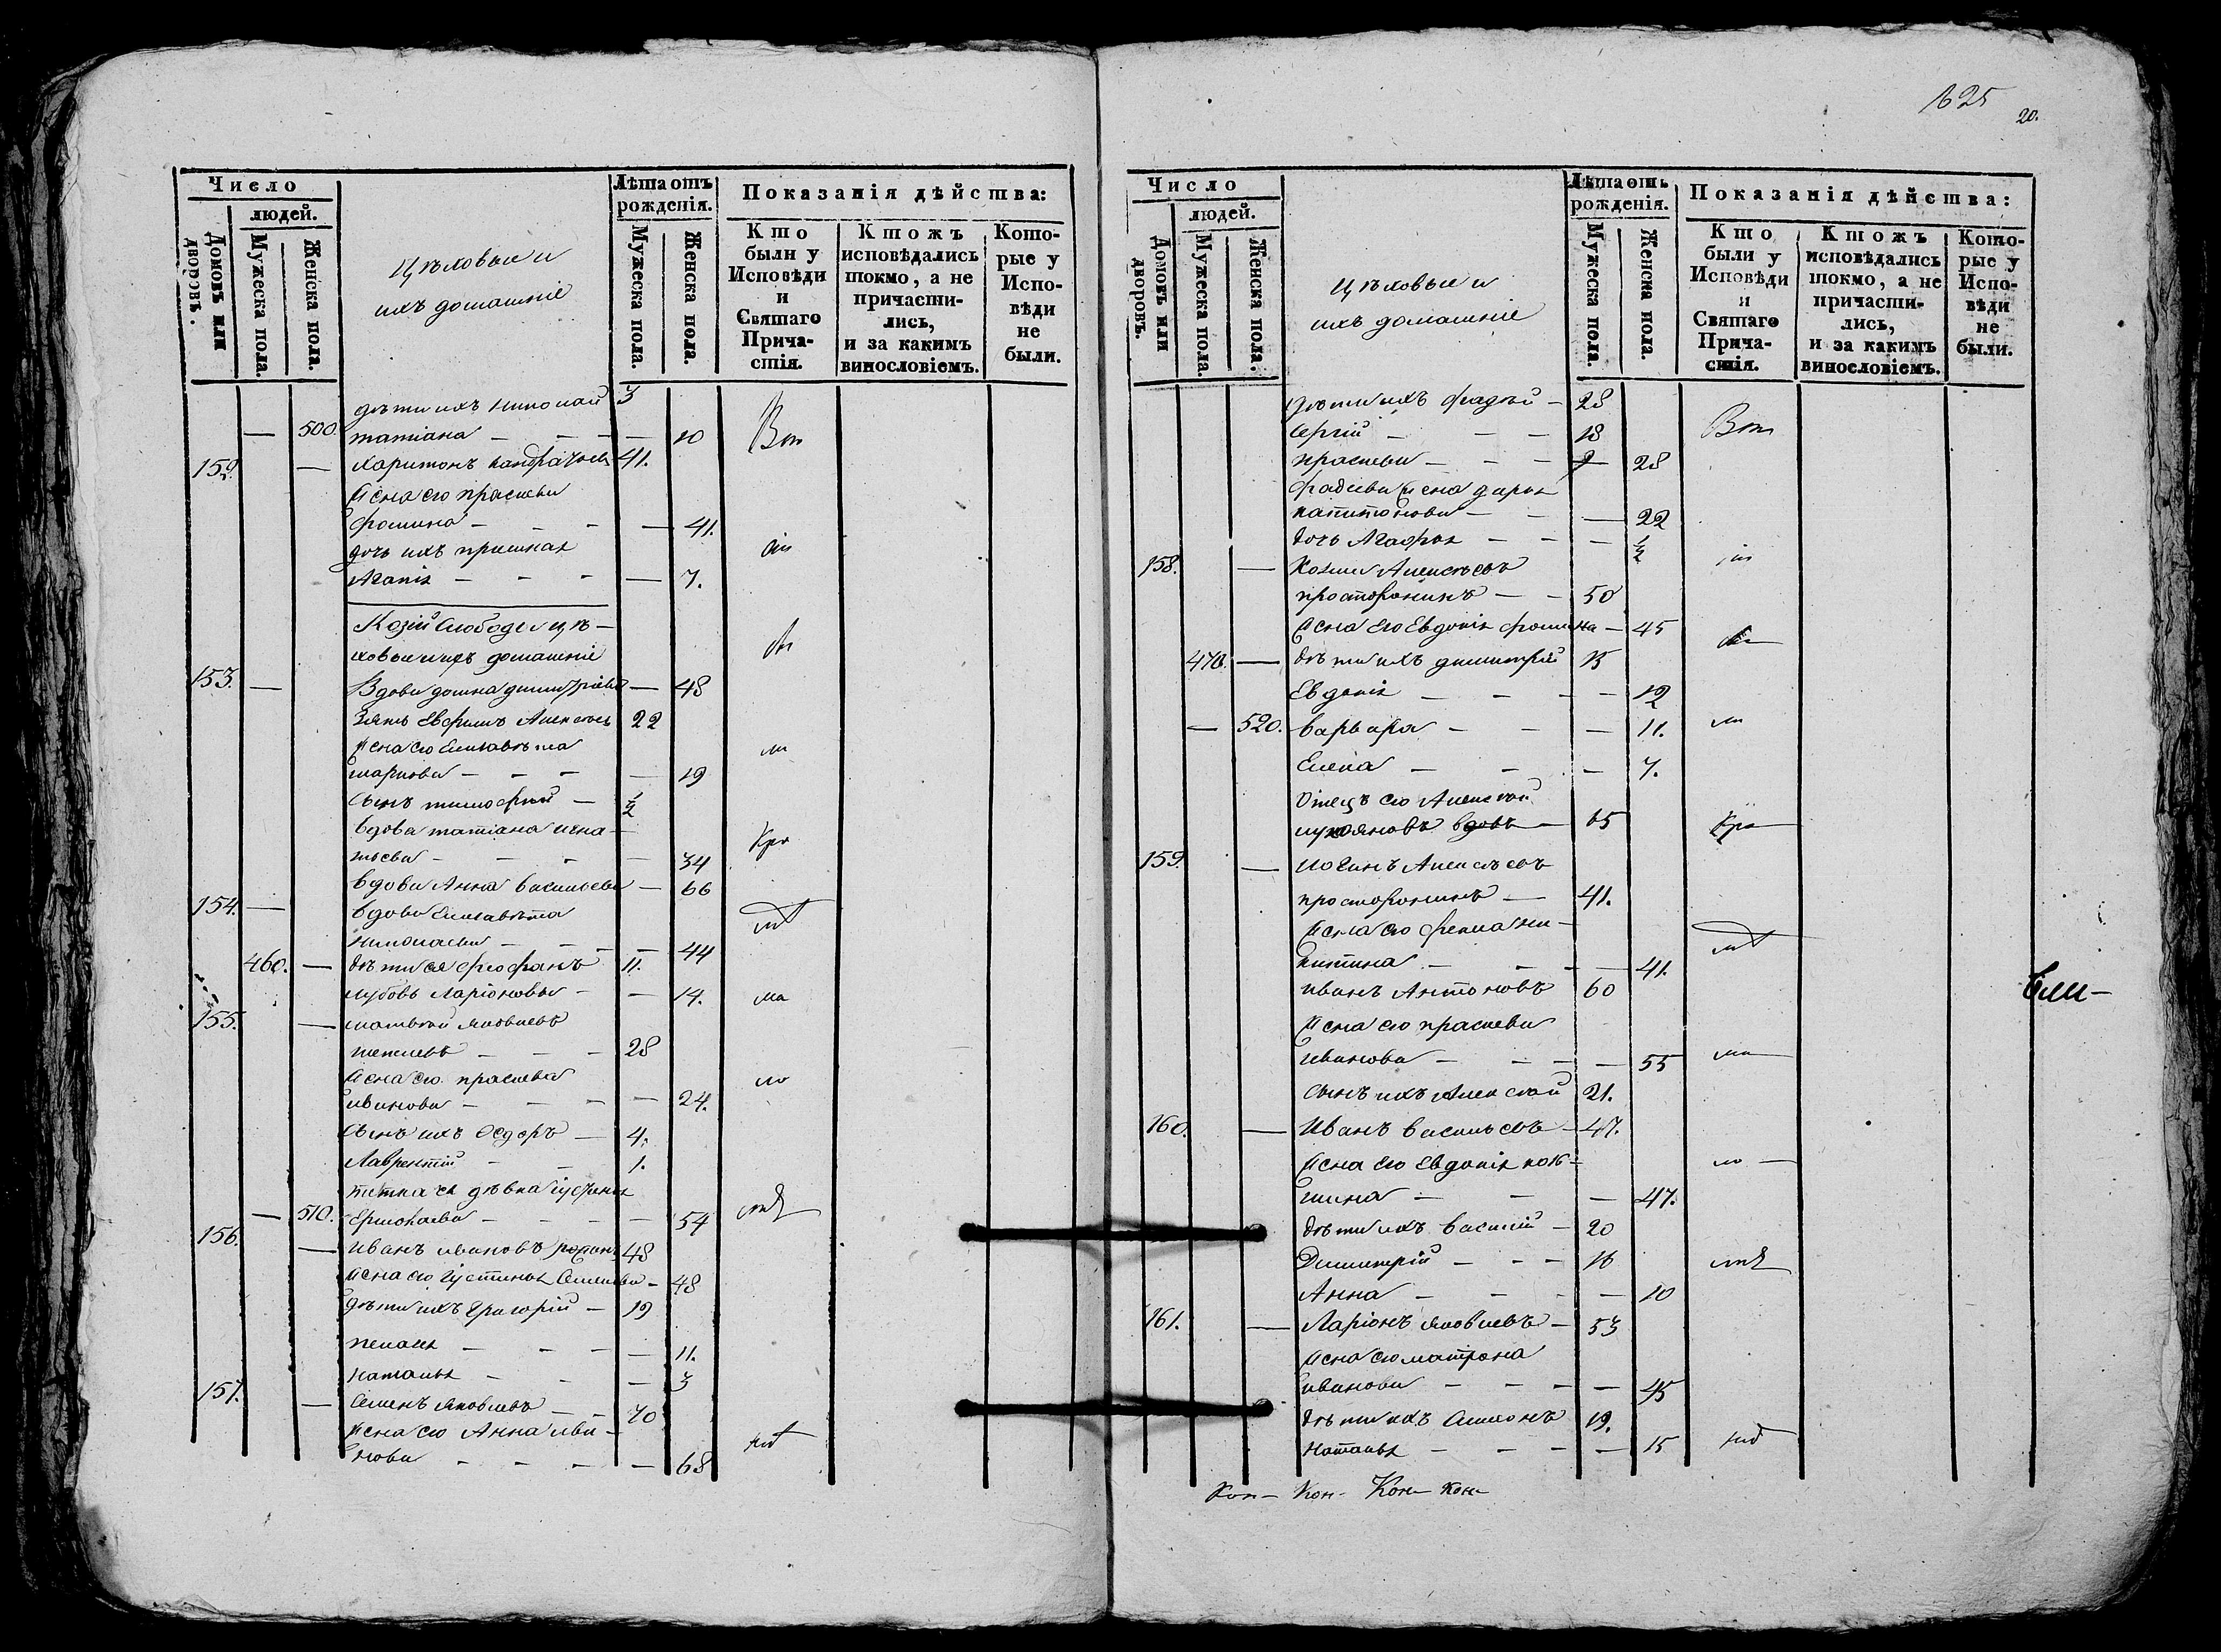 625
20.
Число
людей.
Домовъ или дворовъ.
Мужеска пола.
Женска пола.
Цѣховые и
ихъ домашніе
Лѣта отъ рожденія.
Мужеска пола.
Женска пола.
Показанія дѣйства:
Кто были у Исповѣди и Святаго Прича-стія.
Ктожъ исповѣдались токмо, а не причасти-лись, и за какимъ винословіемъ.
Кото-рые у Испо-вѣди не были.
дѣти ихъ Николай 3
— 500. татіана — — — — 10
152. — Харитонъ 41.
Жена его праскева
фомина — — — — 41.
дочь ихъ
Агапія — — — — 7.
Козій Слободы цѣ—
ховые и ихъ домашніе
153. — Вдова домна — 48
Зять Евфимъ 22
Жена его Елисавета
маркова — — — — 19
Сынъ тимофей — 1/2
вдова татіана игна—
тьева — — — — 34
вдова Анна васильева — 66
154. — вдова Елисавета
николаева — — — — 44
460. — дѣти ея феофанъ 11.
любовь Ларіоновы — — 14.
155. — матвей яковлевъ
— — — 28
Жена его праскева
иванова — — — — 24.
Сынъ ихъ Ѳедоръ — 4.
Лаврентій — — 1.
дѣвка
— 510. Ермолаева — — — — 54
156. — Иванъ ивановъ 48
Жена его Іустинья — 48
дѣти ихъ Григорій — 19
пелагея — — — — 11.
наталья — — — 3
157. — Семенъ яковлевъ — — 70
Жена его Анна ива—
нова — — — — 68
Число
людей.
Домовъ или дворовъ.
Мужеска пола.
Женска пола.
Цѣховые и
ихъ домашніе
Лѣта отъ рожденія.
Мужеска пола.
Женска пола.
Показанія дѣйства:
Кто были у Исповѣди и Святаго Прича-стія.
Ктожъ исповѣдались токмо, а не причасти-лись, и за какимъ винословіемъ.
Кото-рые у Испо-вѣди не были.
дѣти ихъ фадѣй — 28
Сергій — — — 18
праскева — — — 28
фадѣева жена дарья
капитонова — — — 22
дочь Агафья — — — 1/2
158. — Козма Алексѣевъ
— — 50
Жена Его Евдокія фомина — 45
470. — дѣти ихъ димитрій 15
Евдокія — — — — 12
— 520. варвара — — — 11.
Елена — — — 7.
Отецъ его Алексѣй
вдовъ — 65
159. — Логинъ Алексѣевъ
— 41.
Жена его фекла ни—
китина — — — — 41.
иванъ Антоновъ 60
Жена его праскева
Иванова — — — — 55
Сынъ ихъ Алексѣй 21.
160. — Иванъ васильевъ — 47.
Жена Его Евдокія
— — — 47.
дѣти ихъ василій — 20
Димитрій — — — 16
Анна — — — — 10
161. — Ларіонъ яковлевъ — 53
Жена его матрона
иванова — — — — 45
дѣти ихъ Симеонъ 19.
наталья — — — — 15
Были—
Кон— Кон— Кон— Кон—